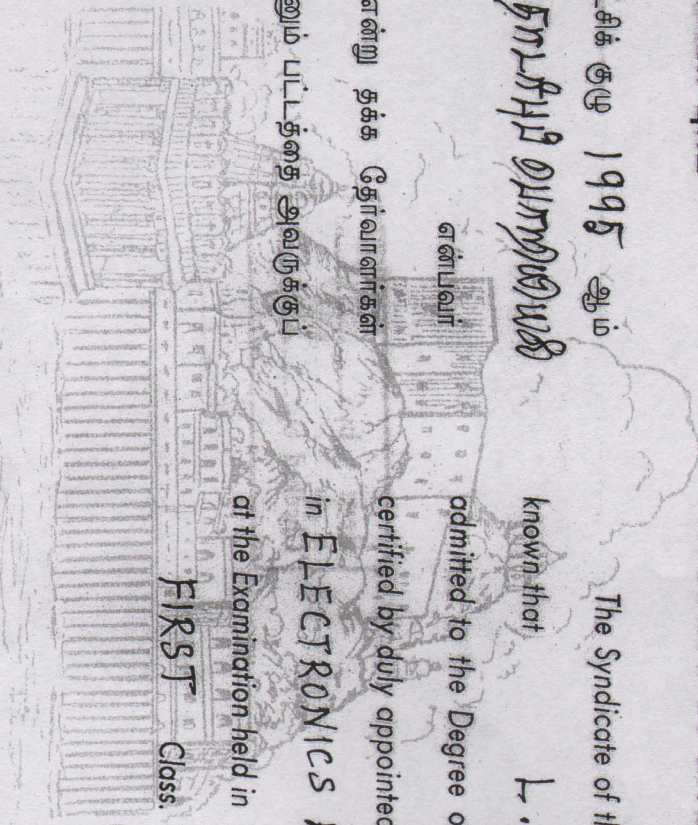 ட்சிக் குழு 1995 ஆம்
பொறியியல்
என்பவர்
என்று தக்க தேர்வாளர்கள்
னும் பட்டத்தை அவருக்குப்
The Syndicate of th
known that L.
admitted to the Degree o
certified by duly appointed
in ELECTRONICS
at the Examination held in
FIRST Class.